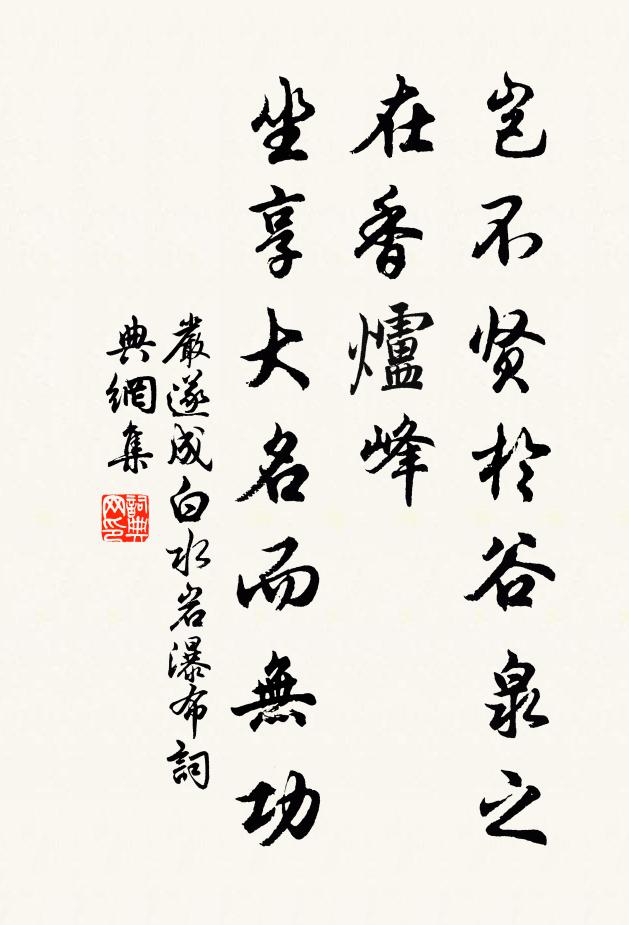 岂不贤於谷泉之
在香爐峰
坐享大名而無功
嚴遂成白水岩瀑布詞
典網集
詞典网印